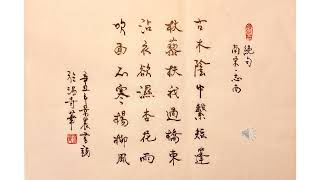 絕句
南宋 志南
古木陰中繫短篷
杖藜扶我過橋東
沾衣欲濕杏花雨
吹面不寒楊柳風
辛丑年